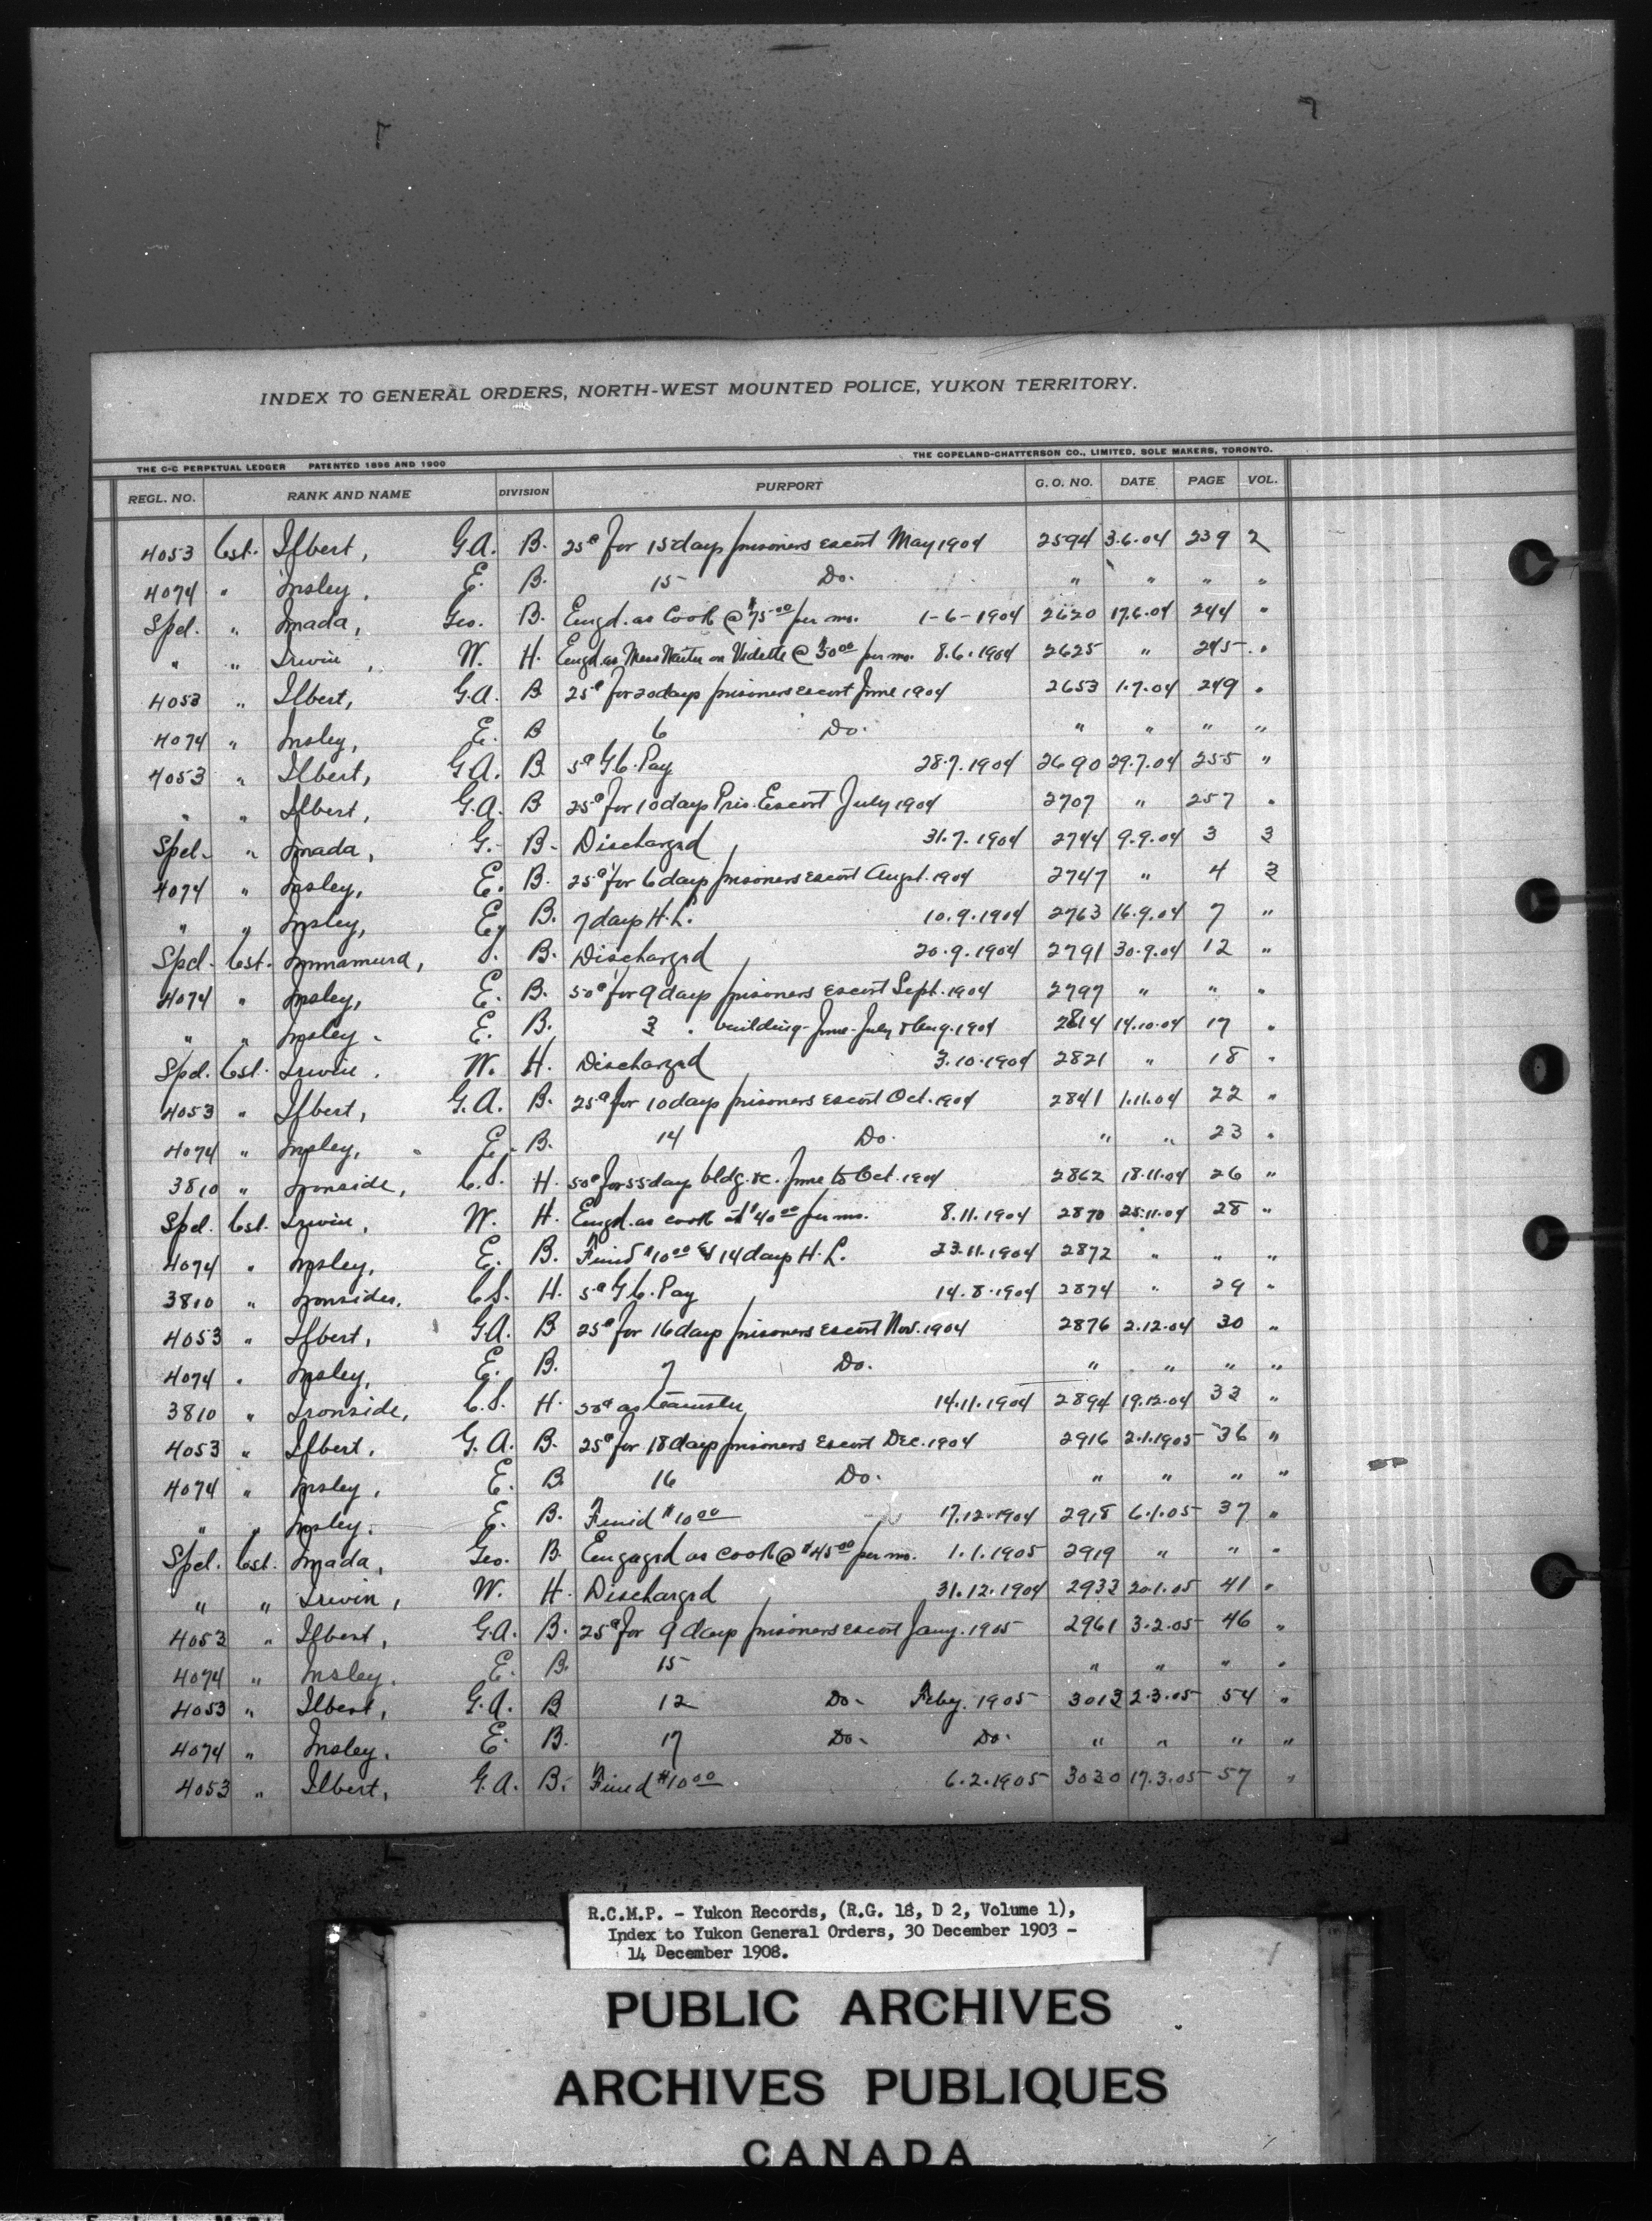 INDEX TO GENERAL ORDERS, NORTH-WEST MOUNTED POLICE, YUKON TERRITORY.
THE C-C PERPETUAL LEDGER PATENTED 1896 AND 1900 THE COPELAND-CHATTERSON CO., LIMITED, SOLE MAKERS, TORONTO.
REGL. NO. RANK AND NAME DIVISION PURPORT G. O. NO. DATE PAGE VOL.
4053 Cst. Ilbert, G.A. B. 25¢ for 15 days prisoners escort May 1904 2594 3.6.04 239 2
4074 " Insley, E. B. 15 Do. " " " "
Spel. " Imada, Geo. B. Engd. as Cook @ $75.00 per mo. 1-6-1904 2620 17.6.04 244 "
" " Irwin, W. H. Engd. as Mess Waiter on Vidette @ 30.00 per mo. 8.6.1904 2625 " 245 "
4053 " Ilbert, G.A. B 25¢ for 20 days prisoners escort June 1904 2653 1.7.04 249 "
4074 " Insley, E. B 6 Do. " " " "
4053 " Ilbert, G.A. B. 5¢ G.C. Pay 28.7.1904 2690 29.7.04 255 "
" " Ilbert, G.A. B 25¢ for 10 days Pris. Escort July 1904 2707 " 257 "
Spel. " Imada, G. B. Discharged 31.7.1904 2744 9.9.04 3 3
4074 " Insley, E. B. 25¢ for 6 days prisoners escort Augst. 1904 2747 " 4 3
" " Insley, E. B. 7 days H.L. 10.9.1904 2763 16.9.04 7 "
Spel. Cst. B. Discharged 20.9.1904 2791 30.9.04 12 "
4074 " Insley, E. B. 50¢ for 9 days prisoners escort Sept. 1904 2797 " " "
" " Insley. E. B. 3 " building June-July & Aug. 1904 2814 14.10.04 17 "
Spel. Cst. Irwin. W. H. Discharged 3.10.1904 2821 " 18 "
4053 " Ilbert, G.A. B. 25¢ for 10 days prisoners escort Oct. 1904 2841 1.11.04 22 "
4074 " Insley, E. B. 14 Do. " " 23 "
3810 " Ironside, C.S. H. 50¢ for 55 days bldg. &c. June to Oct. 1904 2862 18.11.04 26 "
Spel. Cst. Irwin, W. H. Engd. as cook at $40.00 per mo. 8.11.1904 2870 25.11.04 28 "
4074 " Insley, E. B. Fined $10.00 & 14 days H.L. 23.11.1904 2872 " " "
3810 " Ironsides, C.S. H. 5¢ G.C. Pay 14.8.1904 2874 " 29 "
4053 " Ilbert, G.A. B 25¢ for 16 days prisoners escort Nov. 1904 2876 2.12.04 30 "
4074 " Insley, E. B. 7 Do. " " " "
3810 " Ironside, C.S. H. 50¢ as teamster 14.11.1904 2894 19.12.04 33 "
4053 " Ilbert. G.A. B. 25¢ for 18 days prisoners Escort Dec. 1904 2916 2.1.1905 36 "
4074 " Insley, E. B 16 Do. " " " "
" " Insley. E. B. Fined $10.00 17.12.1904 2918 6.1.05 37 "
Spel. Cst. Imada, Geo. B. Engaged as cook @ $45.00 per mo. 1.1.1905 2919 " " "
" " Irwin, W. H. Discharged 31.12.1904 2933 20.1.05 41 "
4053 " Ilbert, G.A. B. 25¢ for 9 days prisoners escort Jany. 1905 2961 3.2.05 46 "
4074 " Insley. E. B. 15 " " " "
4053 " Ilbert, G.A. B 12 Do. Feby. 1905 3013 2.3.05 54 "
4074 " Insley. E. B. 17 Do. Do. " " " "
4053 " Ilbert, G.A. B. Fined $10.00 6.2.1905 3030 17.3.05 57 "
R.C.M.P. - Yukon Records, (R.G. 18, D 2, Volume 1),
Index to Yukon General Orders, 30 December 1903 -
14 December 1908.
PUBLIC ARCHIVES
ARCHIVES PUBLIQUES
CANADA